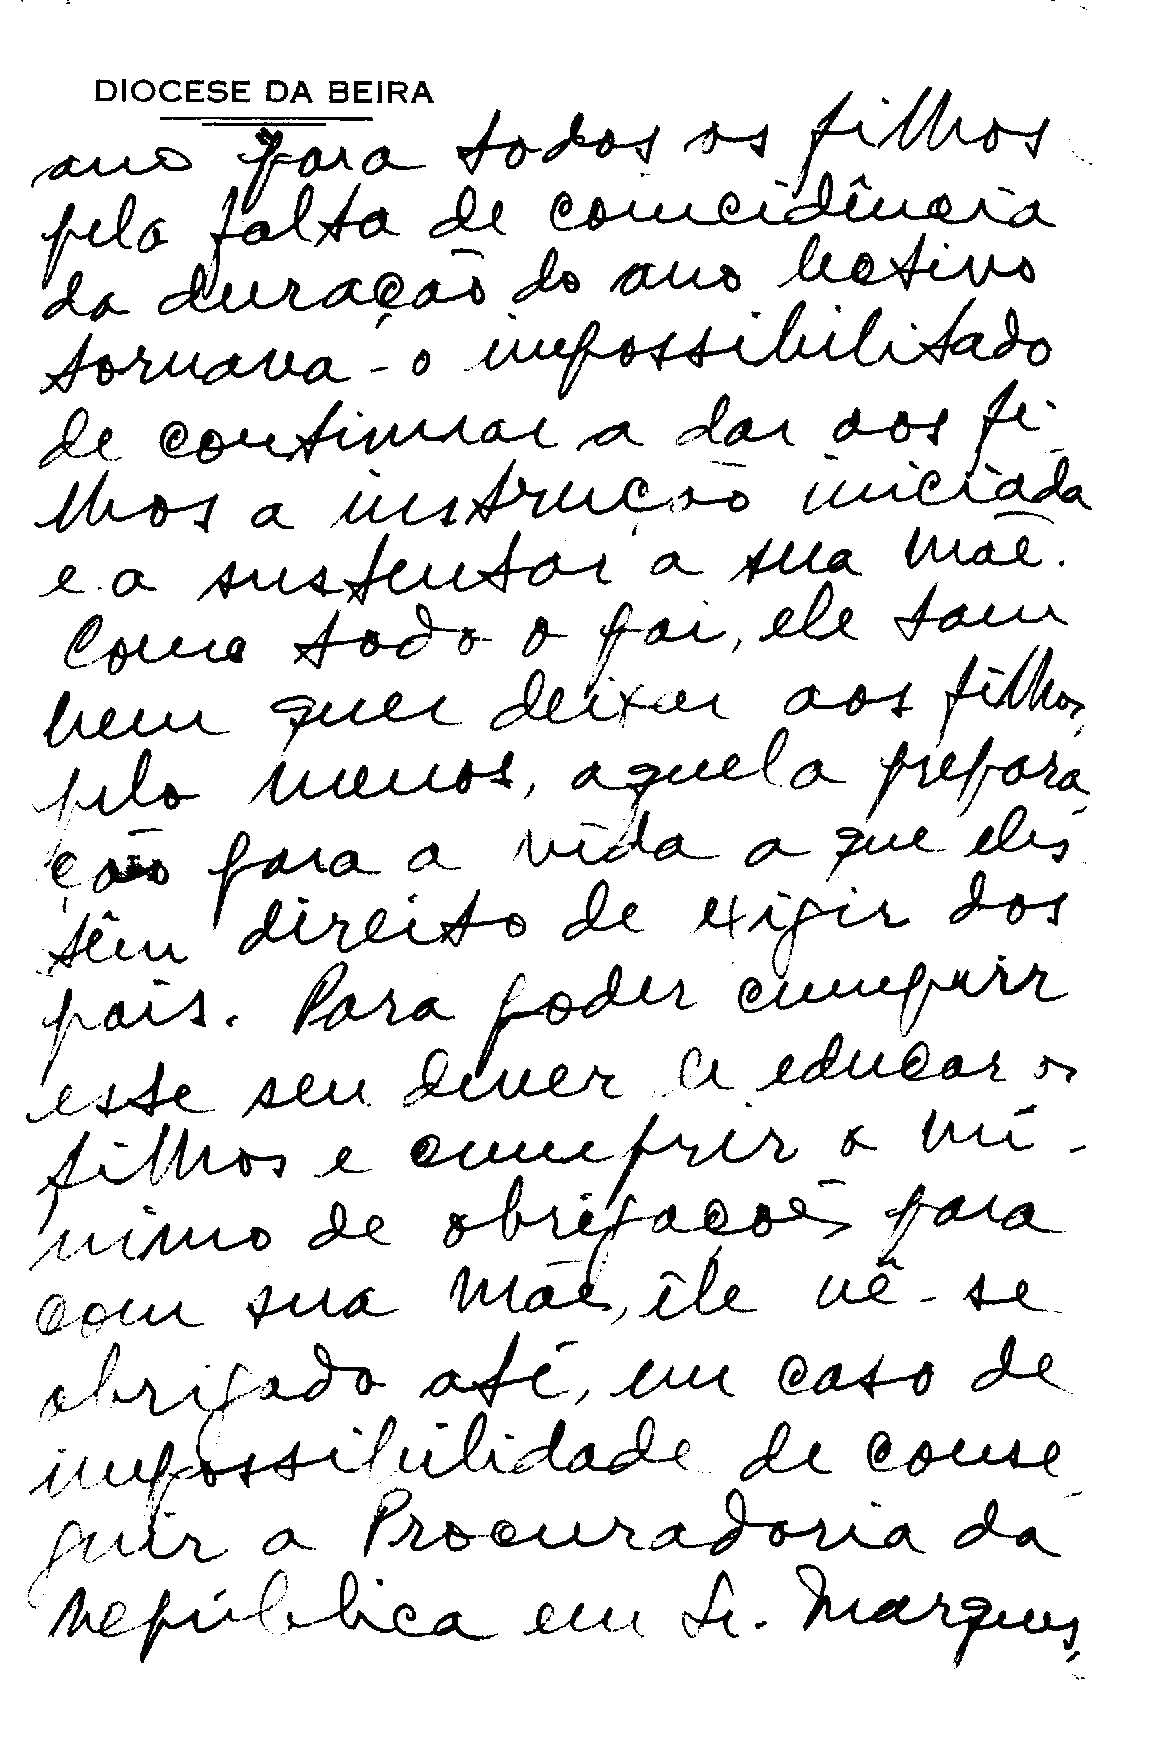 DIOCESE DA BEIRA
ano para todos os filhos
pela falta de coincidência
da duração do ano lectivo
tornava-o impossibilitado
de continuar a dar aos fi-
lhos a instrução iniciada
e a sustentar a sua mãe.
Como todo o pai, ele tam
bem quer deixar aos filhos,
pelo menos, aquela prepara
ção para a vida a que eles
têm direito de exigir dos
pais. Para poder cumprir
esse seu dever de educar os
filhos e cumprir o mí-
nimo de obrigações para
com sua mãe, êle vê-se
obrigado até, em caso de
impossibilidade de conse
guir a Procuradoria da
República em L. Marques,